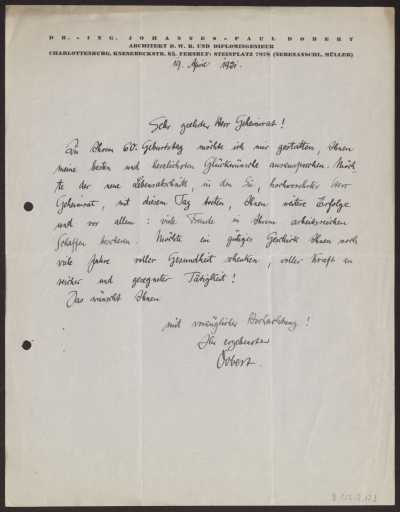 DR.-ING. JOHANNES-PAUL DOBERT
ARCHITEKT D. W. B. UND DIPLOMINGENIEUR
CHARLOTTENBURG, KNESEBECKSTR. 85. FERNRUF: STEINPLATZ 7978 (NEBENANSCHL. MÜLLER)
19. April 1931.
Sehr geehrter Herr Geheimrat!
Zu Ihrem 60. Geburtstag möchte ich mir gestatten, Ihnen
meine besten und herzlichsten Glückwünsche auszusprechen. Möch-
te der neue Lebensabschnitt, in den Sie, hochverehrter Herr
Geheimrat, mit diesem Tag treten, Ihnen weitere Erfolge
und vor allem: viele Freude in Ihrem arbeitsreichen
Schaffen bescheren. Möchte ein gütiges Geschick Ihnen noch
viele Jahre voller Gesundheit schenken, voller Kraft zu
reicher und gesegneter Tätigkeit!
Das wünscht Ihnen
mit vorzüglicher Hochachtung!
Ihr ergebenster
Dobert.